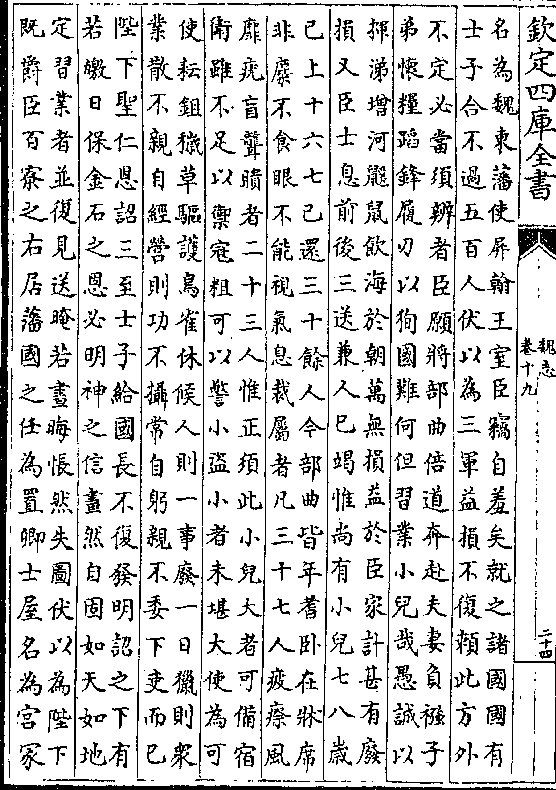 欽定四庫全書
魏志
卷十九
二十四
名為魏東藩使屏翰王室臣竊自羞矣就之諸國國有
士子合不過五百人伏以為三軍益損不復頼此方外
不定必當須辨者臣願將部曲倍道奔赴夫妻負襁子
弟懷糧蹈鋒履刃以狥國難何但習業小兒哉愚誠以
揮涕增河鼷鼠飲海於朝萬無損益於臣家計甚有廢
損又臣士息前後三送兼人已竭惟尚有小兒七八歲
已上十六七已還三十餘人今部曲皆年耆卧在牀席
非糜不食眼不能視氣息裁屬者凡三十七人疲瘵風
靡疣盲聾聵者二十三人惟正須此小兒大者可備宿
衛雖不足以禦寇粗可以警小盜小者未堪大使為可
使耘鉏穢草驅護鳥雀休候人則一事廢一日獵則衆
業散不親自經營則功不攝常自躬親不委下吏而已
陛下聖仁恩詔三至士子給國長不復發明詔之下有
若皦日保金石之恩必明神之信畫然自固如天如地
定習業者並復見送晻若晝晦悵然失圖伏以為陛下
既爵臣百寮之右居藩國之任為置卿士屋名為宫冢